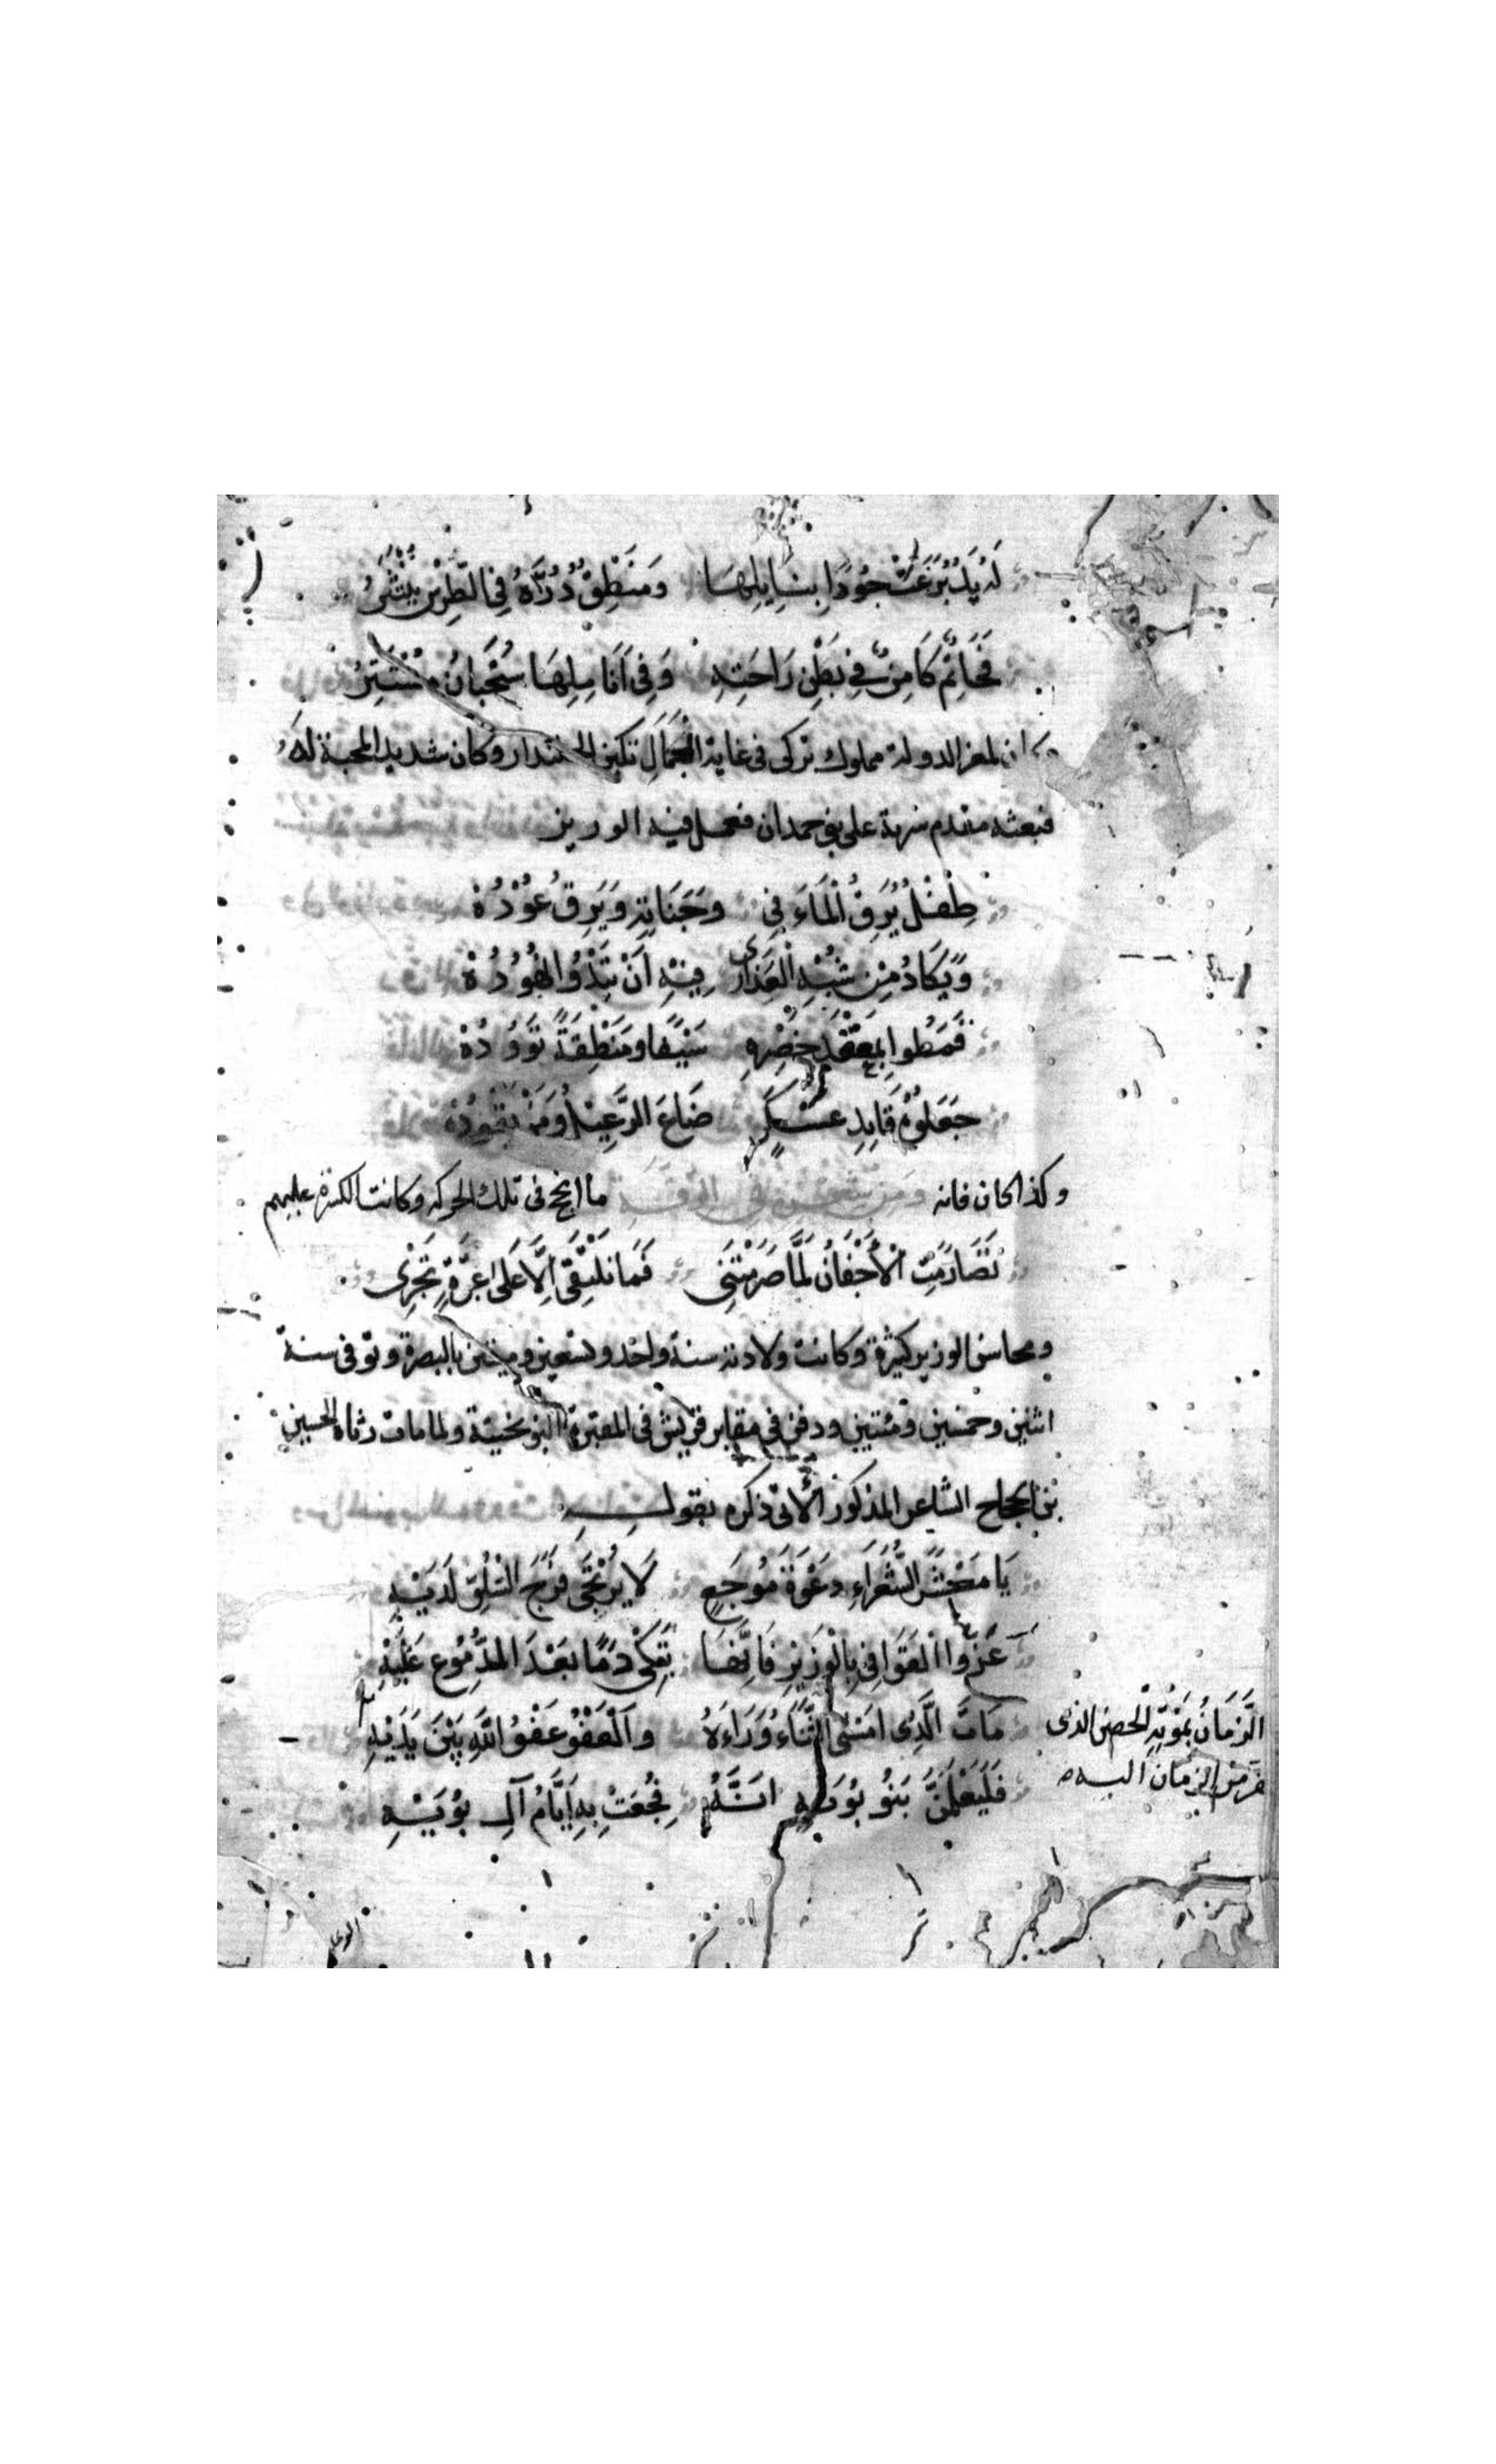 لَهُ يَدٌ بَرَعَتْ جُودًا بِنَايِلِهَا وَمَنْطِقٌ دُرُّهُ فِي الطِّرْسِ يَنْتَثِرُ
فَحَاتِمٌ كَامِنٌ فِي بَطْنِ رَاحَتِهِ وَفِي اَنَامِلِهَا سُحْبَانُ مُسْتَتِرُ
وكان لمعز الدولة مملوك تركى فى غاية الجمال تكين الجمدار وكان شديد المحبة له
فبعثه مقدم سرية على بنى حمدان فعمل فيه الوزير
طِفْلٌ يُرِقُ الْمَاءَ فِي وَجَنَاتِهِ وَيَرِقُ عُوْدُهْ
وَيَكَادُ مِنْ شَبَهِ الْعَذَارَى فِيْهِ اَنْ تَبْدُوْ نُهُوْدُهْ
نَاطُوا بِمَعْقَدِ خَصْرِهِ سَيْفًا وَمَنْطِقَةً تَؤُوْدُهْ
جَعَلُوْهُ قَايِدَ عَسْكَرٍ ضَاعَ الرَّعِيْلُ وَمَنْ يَقُوْدُهْ
وكذا كان فانه ما انجح فى تلك الحركه وكانت الكسرة عليهم
تَصَارَمَتِ الْأَجْفَانُ لَمَّا صَرَمْتَنِى فَمَا نَلْتَقِى اِلَّا عَلَى عَبْرَةٍ تَجْرِى
ومحاسن الوزير كثيرة وكانت ولادته سنة واحد وتسعين وميتين بالبصرة وتوفى سنة
اثنين وخمسين ومئتين ودفن فى مقابر قريش فى المقبرة النوبختية ولما مات رثاه الحسين
بن الحجاج الشاعر المذكور الأتى ذكره بقوله
يَا مَعْشَرَ الشُّعَرَاءِ دَعْوَةَ مُوْجَعٍ لَا يُرْتَجَى فَرَجُ السُّلُوِّ لَدَيْهِ
عَزُّوا الْقَوَافِي بِالْوَزِيْرِ فَاِنَّهَا تَبْكِى دَمًا بَعْدَ الدُّمُوْعِ عَلَيْهِ
مَاتَ الَّذِى اَمْسَى الثَّنَاءُ وَرَاءَهُ وَالْعَفْوُ عَفْوُ اللّهِ بَيْنَ يَدَيْهِ
الزَّمَانُ بِمَوْتِهِ الحصن الذى
نفر من الزمان اليه
فَلْيَعْلَمَنَّ بَنُو بُوَيْهٍ اَنَّهُ فُجِعَتْ بِهِ اَيَّامُ آلِ بُوَيْهِ